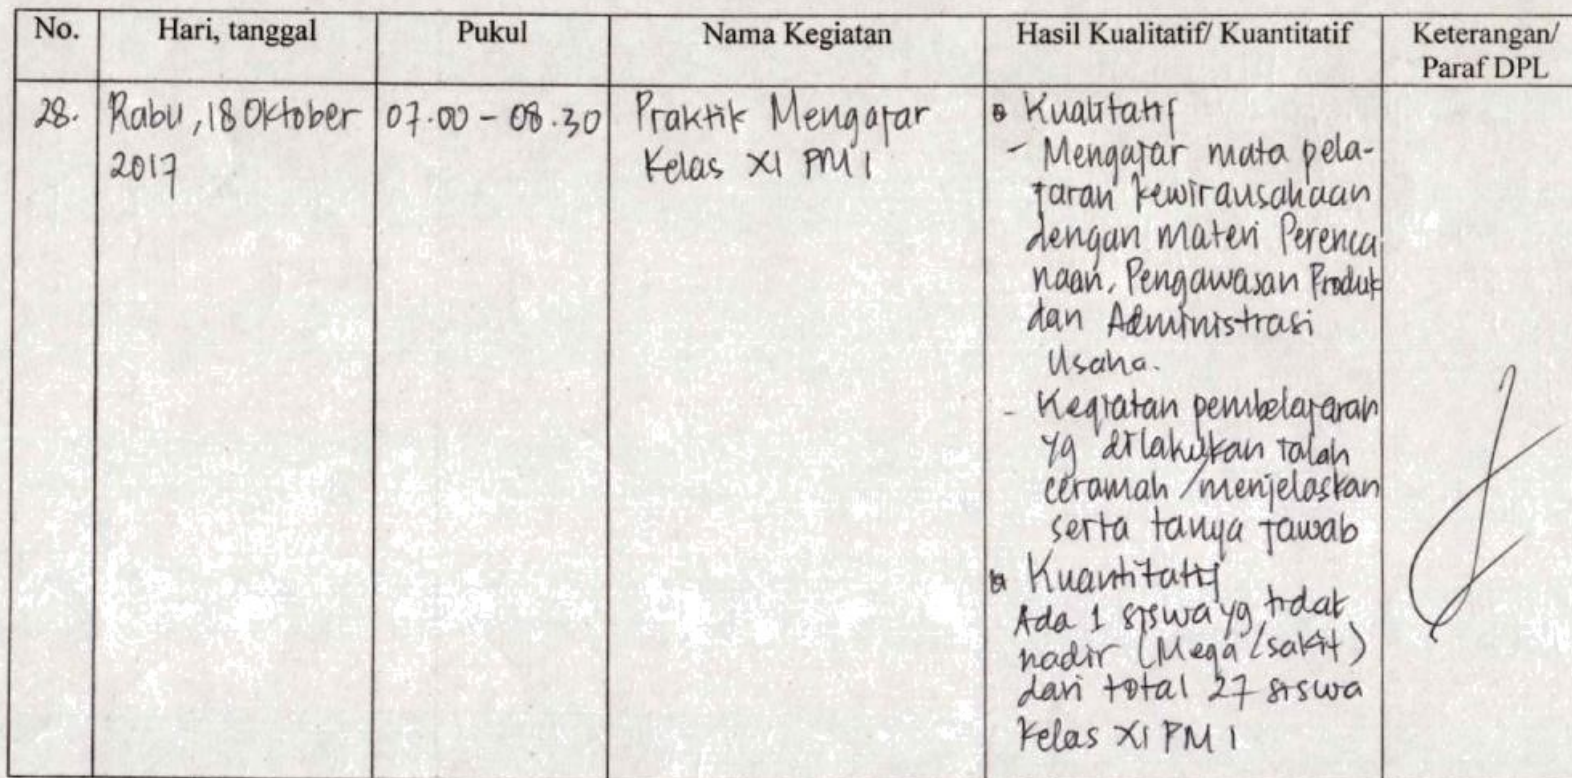 No.
Hari, tanggal
Pukul
Nama Kegiatan
Hasil Kualitatif/ Kuantitatif
Keterangan/
Paraf DPL
28.
Rabu, 18 Oktober
2017
07.00 - 08.30
Praktik Mengajar
Kelas XI PM 1
Kualitatif
- Mengajar mata pela-
jaran kewirausahaan
dengan materi Perenca
naan, Pengawasan Produk
dan Administrasi
Usaha.
- Kegiatan pembelajaran
yg dilakukan ialah
ceramah/menjelaskan
serta tanya jawab
Kuantitatif
Ada 1 siswa yg tidak
hadir (Mega/sakit)
dari total 27 siswa
kelas XI PM 1